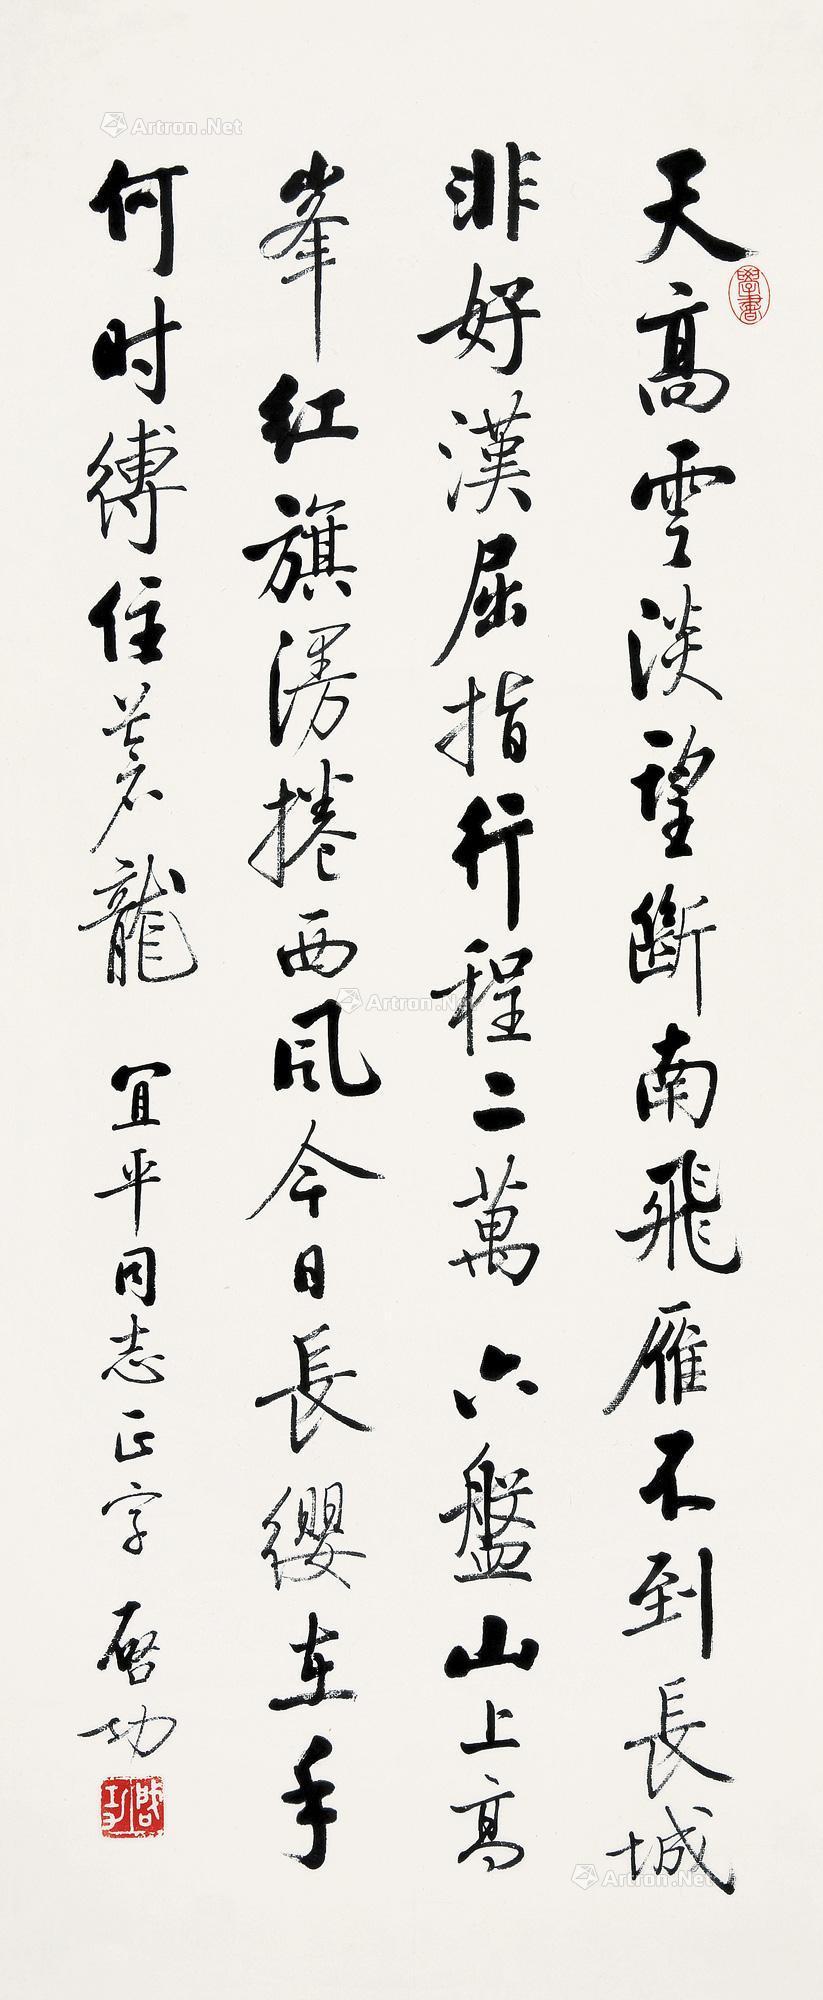 天高雲淡望斷南飛雁不到長城
非好漢屈指行程二萬六盤山上高
峯红旗漫捲西风今日長纓在手
何时縛住蒼龍
宜平同志正字 啓功
學書
啟功
Artron.Net
Artron.Net
Artron.Net